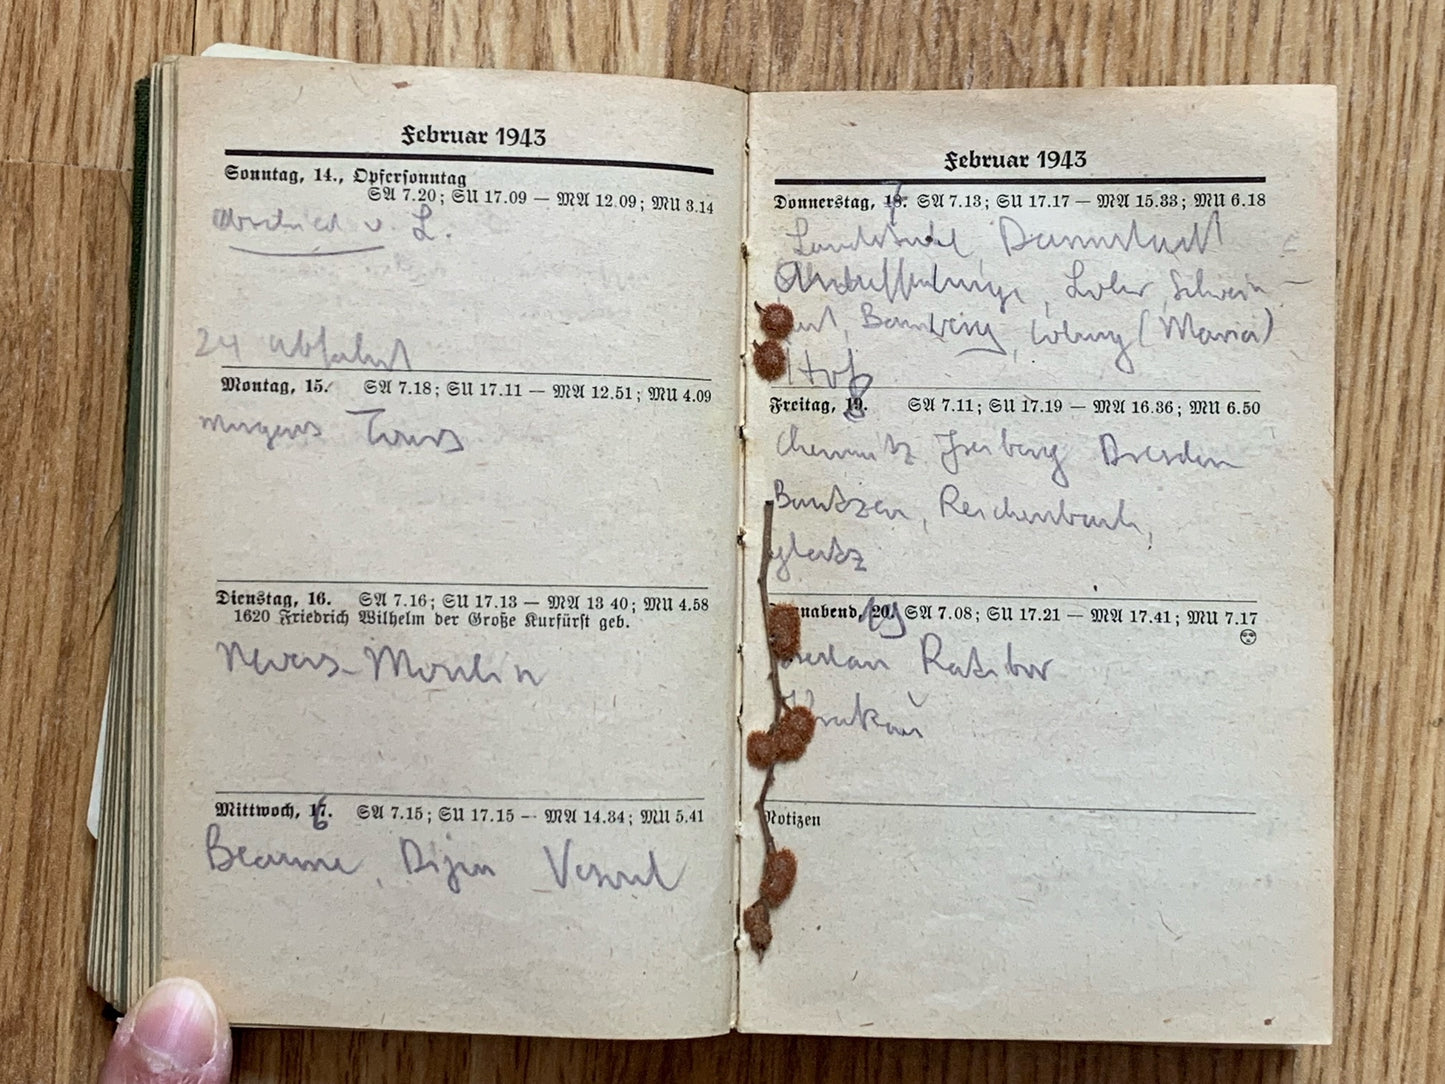 Februar 1943
Sonntag, 14., Opfersonntag
SA 7.20; SU 17.09 — MA 12.09; MU 3.14
Abschied v. L.
24 Abfahrt
Montag, 15. SA 7.18; SU 17.11 — MA 12.51; MU 4.09
morgens Tours
Dienstag, 16. SA 7.16; SU 17.13 — MA 13 40; MU 4.58
1620 Friedrich Wilhelm der Große Kurfürst geb.
Nevers - Moulin
Mittwoch, 17. SA 7.15; SU 17.15 — MA 14.34; MU 5.41
6
Beaume, Dijon Vesoul
Februar 1943
Donnerstag, 18. SA 7.13; SU 17.17 — MA 15.33; MU 6.18
7
Landstuhl Darmstadt
Aschaffenburg, Lohr, Schwein-
furt, Bamberg, Coburg (Maria)
Hof
Freitag, 19. SA 7.11; SU 17.19 — MA 16.36; MU 6.50
8
Chemnitz Freiberg Dresden
Bautzen, Reichenbach,
Glatz
Sonnabend, 20. SA 7.08; SU 17.21 — MA 17.41; MU 7.17
19
Ratibor
Krakau
Notizen